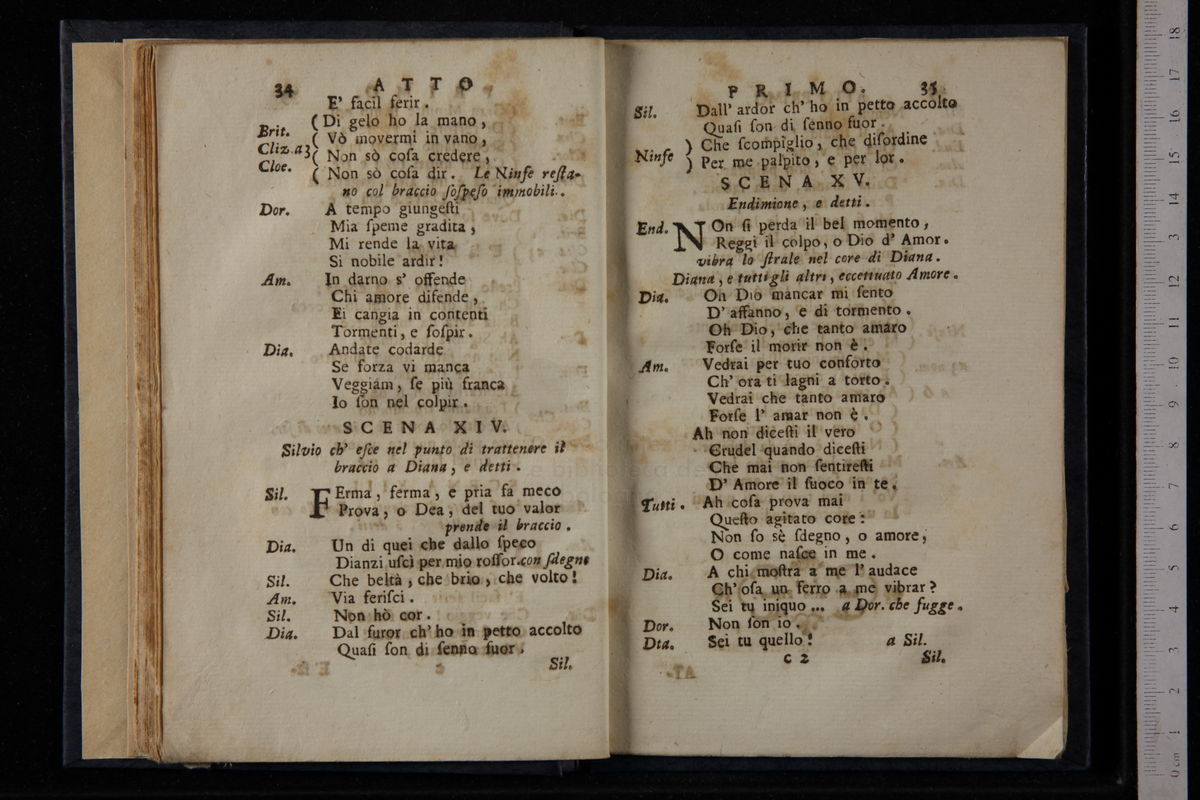 34 ATTO
E' facil ferir.
Brit. Cliz. a3 Cloe. (Di gelo ho la mano,
( Vò movermi in vano,
( Non sò coſa credere,
( Non sò coſa dir. Le Ninfe reſta-
no col braccio ſoſpeſo immobili.
Dor. A tempo giungeſti
Mia ſpeme gradita,
Mi rende la vita
Si nobile ardir!
Am. In darno s' offende
Chi amore difende,
Ei cangia in contenti
Tormenti, e ſoſpir.
Dia. Andate codarde
Se forza vi manca
Veggiam, ſe più franca
Io ſon nel colpir.
SCENA XIV.
Silvio ch' eſce nel punto di trattenere il
braccio a Diana, e detti.
Sil. FErma, ferma, e pria fa meco
Prova, o Dea, del tuo valor
prende il braccio.
Dia. Un di quei che dallo ſpeco
Dianzi uſcì per mio roſſor. con ſdegno
Sil. Che beltà, che brio, che volto!
Am. Via feriſci.
Sil. Non hò cor.
Dia. Dal furor ch' ho in petto accolto
Quaſi ſon di ſenno fuor.
Sil.
PRIMO. 35
Sil. Dall' ardor ch' ho in petto accolto
Quaſi ſon di ſenno fuor.
Ninfe ) Che ſcompiglio, che diſordine
) Per me palpito, e per lor.
SCENA XV.
Endimione, e detti.
End. NOn ſi perda il bel momento,
Reggi il colpo, o Dio d' Amor.
vibra lo ſtrale nel core di Diana.
Diana, e tutti gli altri, eccettuato Amore.
Dia. Oh Dio mancar mi ſento
D' affanno, e di tormento.
Oh Dio, che tanto amaro
Forſe il morir non è.
Am. Vedrai per tuo conforto
Ch' ora ti lagni a torto.
Vedrai che tanto amaro
Forſe l' amar non è.
Ah non diceſti il vero
Crudel quando diceſti
Che mai non ſentireſti
D' Amore il fuoco in te.
Tutti. Ah coſa prova mai
Queſto agitato core:
Non ſo sè ſdegno, o amore;
O come naſce in me.
Dia. A chi moſtra a me l' audace
Ch' oſa un ferro a me vibrar?
Sei tu iniquo ... a Dor. che fugge.
Dor. Non ſon io.
Dia. Sei tu quello! a Sil.
C 2 Sil.